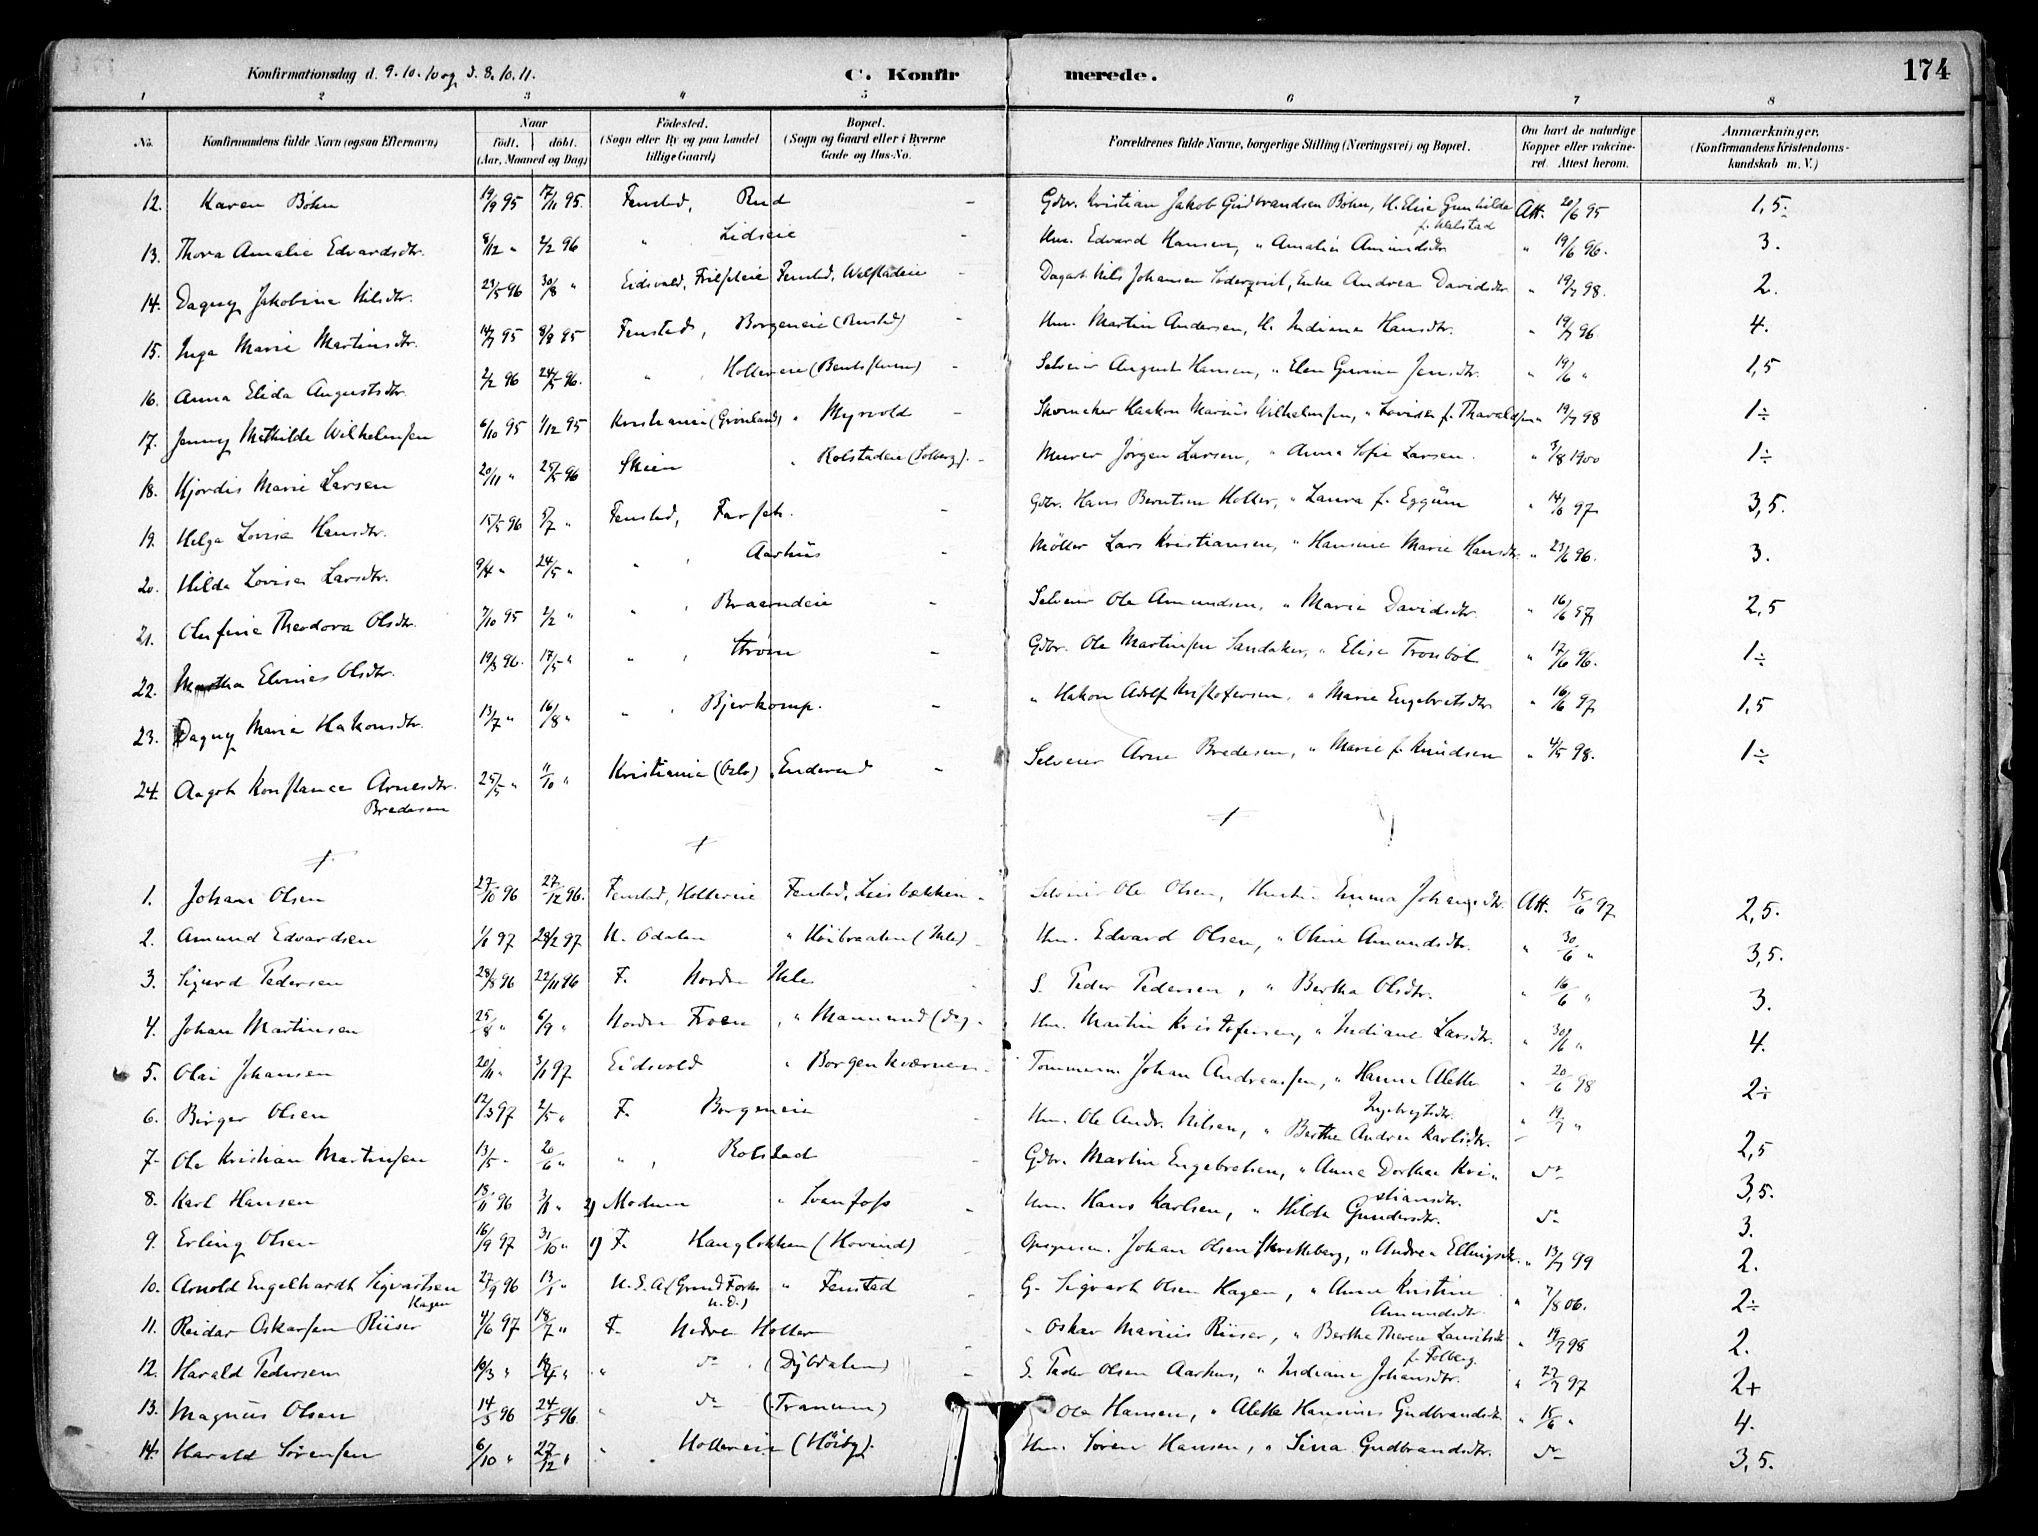 Konfirmationsdag d. 9.10.10 og d. 8.10.11. C. Konfirmerede. 174
1 2 3 4 5 6 7 8
No. Konfirmandens fulde Navn (ogsaa Efternavn) Naar født. døbt. (Aar, Maaned og Dag) Fødested. (Sogn eller By og paa Landet tillige Gaard) Bopæl. (Sogn og Gaard eller i Byerne Gade og Hus-No. Forældrenes fulde Navne, borgerlige Stilling (Næringsvei) og Bopæl. Om havt de naturlige Kopper eller vakcineret. Attest herom. Anmærkninger. (Konfirmandens Kristendomskundskab m. V.)
12. Karen Bøhn 19/9 95 17/11 95. Fenstad, Rud Gdbr. Kristian Jakob Gudbrandsen Bøhn, H. Elise Gunhilda f. Helstad Att. 20/6 95 1,5÷
13. Thora Amalie Edvardsdtr. 8/12 " 2/2 96 " Lidseie Hm. Edvard Hansen, " Amalie Amundsdtr " 19/6 96. 3.
14. Dagny Jakobine Nilsdtr. 23/5 96 30/8 " Eidsvold, Fenstad, Dagarb. Nils Johansen Söderqvist, Enke Andrea Davidsdtr " 19/7 98. 2.
15. Inga Marie Martinsdtr. 14/7 95 8/9 95 Fenstad, Borgeneie Hm. Martin Andersen, H. Indiana Hansdtr. " 19/7 96 4.
16. Anna Elida Augustsdtr. 2/2 96 24/5 96. " Hollereie Selveier August Hansen, " Elen Gurine Jensdtr. " 19/6 " 1,5
17. Jenny Mathilde Wilhelmsen 6/10 95 1/12 95 Kristiania (Grønland) " Myrvold Skomaker Haakon Marius Wilhelmsen, " Lovisa f. Tharaldsen " 19/7 98 1÷
18. Hjordis Marie Larsen 20/11 " 25/5 96 Skien " Rolstadeie (Solberg). Murer Jørgen Larsen, " Anna Sofie Larsen. " 3/8 1900 1÷
19. Helga Lovise Hansdtr. 15/5 96 5/7 " Fenstad, Gdbr. Hans Berntsen Holler, " Laura f. Eggum " 14/6 97 3,5.
20. Hilda Lovisa Larsdtr. 9/4 " 24/5 " " Aarhus Møller Lars Kristiansen, " Hansine Marie Hansdtr. " 23/6 96. 3.
21. Olufine Theodora Olsdtr. 7/10 95 2/2 " " Braarudeie Selveier Ole Amundsen, " Marie Davidsdtr. " 16/6 97 2,5
22. Martha Elvine Olsdtr. 19/3 96. 17/5 " " Strøm Gdbr. Ole Martinsen Sandaker, " Elise Tronbøl " 17/6 96. 1÷
23. Dagny Marie Hakonsdtr. 13/7 " 16/8 " " Bjerkomp. " Hakon Adolf Kristofersen, " Marie Engebretsdtr " 16/6 97 1,5
24. Aagot Konstance Arnesdtr. 25/5 " 11/10 " Kristiania (Oslo) " Enderud Selveier Arne Bredesen, " Marie f. Knudsen " 4/5 98. 1÷
Bredesen
1. Johan Olsen 27/10 96 27/12 96. Fenstad, Hollereie Fenstad, Selveier Ole Olsen, Hustru Emma Johansdtr. Att. 15/6 97 2,5.
2. Amund Edvardsen 1/1 97 28/2 97 N. Odalen " Høibraaten (Hele) Hm. Edvard Olsen, " Oline Amundsdtr. " 30/6 " 3,5.
3. Sigurd Pedersen 28/8 96 22/11 96 F. Nordre S. Peder Pedersen, " Bertha Olsdtr. " 16/6 " 3.
4. Johan Martinsen 25/8 " 6/9 " Nordre Hm. Martin Kristofersen, " Indiane Larsdtr. " 30/6 " 4.
5. Olai Johansen 20/11 " 3/1 97 Eidsvold " Borgen kværnen Tømmerm. Johan Andreassen, " Hanna Alette Ingebrigtsdtr. " 20/6 98 2÷
6. Birger Olsen 12/3 97 2/5 " F. Borgeneie Hm. Ole Andr. Nilsen, " Berthe Andrea Karlsdtr. " 19/7 " 2,5
7. Ole Kristian Martinsen 13/5 " 20/6 " " Rolstad Gdbr. Martin Engebretsen, " Anna Dorthea Kristiansdtr. do 3,5.
8. Karl Hansen 18/11 96 3/1 " 2) Modum " Svanfoss Hm. Hans Karlsen, " Hilda Gundersdtr. do 3.
9. Erling Olsen 16/9 97 31/10 " 1) F. Hauglokken (Hovind) Johan Olsen Skrattberg, " Andrea Ellingsdtr. " 13/7 99 2.
10. Arnold Engelhardt Sigvartsen Hagen 27/9 96 13/1 " U.S.A (Grand Forks N.D.) " Fenstad G. Sigvart Olsen Hagen, " Anne Kristine Amundsdtr. " 7/8 06. 2÷
11. Reidar Oskarsen Riiser 4/6 97 18/7 " F. Nedre Holler " Oskar Marius Riiser, " Berthe Therese Lauritsdtr f. Folberg. " 19/7 98 2.
12. Harald Pedersen 10/3 " 18/4 " " do (Dybdalen) S. Peder Olsen Aarhus, " Indiana Johansdtr. " 27/7 97 2+
13. Magnus Olsen 14/3 96 24/5 96 " do (Tranum) Ole Hansen, " Alette Hansine Gudbrandsdtr " 15/6 " 4.
14. Harald Sørensen 6/10 " 27/12 " " Hollereie (Høiby). Hm. Søren Hansen, " Sina Gudbrandsdtr. do 3,5.